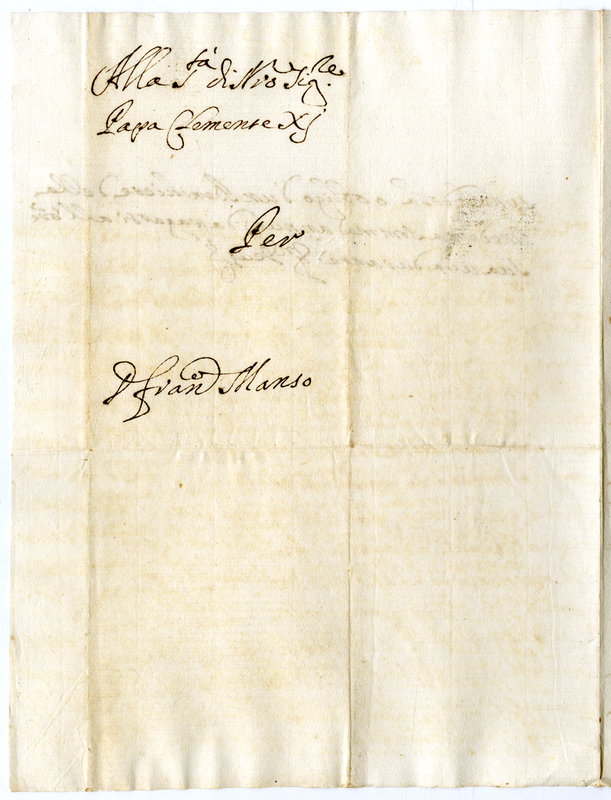 Alla S.tà di N'ro Sig.re
Papa Clemente XJ
Per
D Fran.co Manso